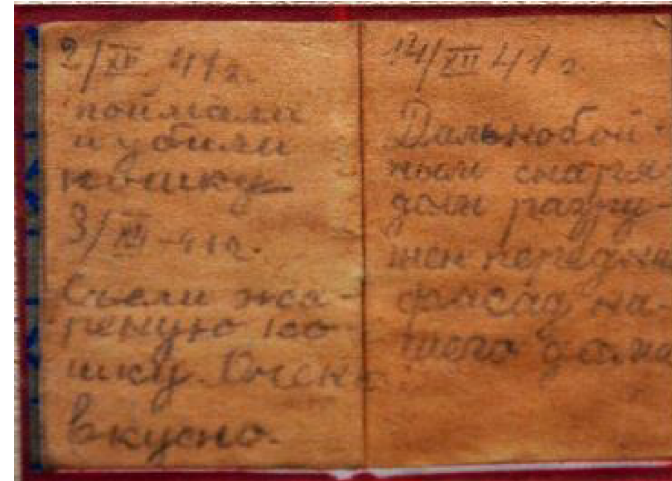 2/XII 41 г.
поймали
и убили
кошку
3/XII-41г.
Съели жа-
реную ко-
шку. Очень
вкусно.
14/XII 41 г.
Дальнобой-
ным снаря-
дом разру-
шен передний
фасад на-
шего дома